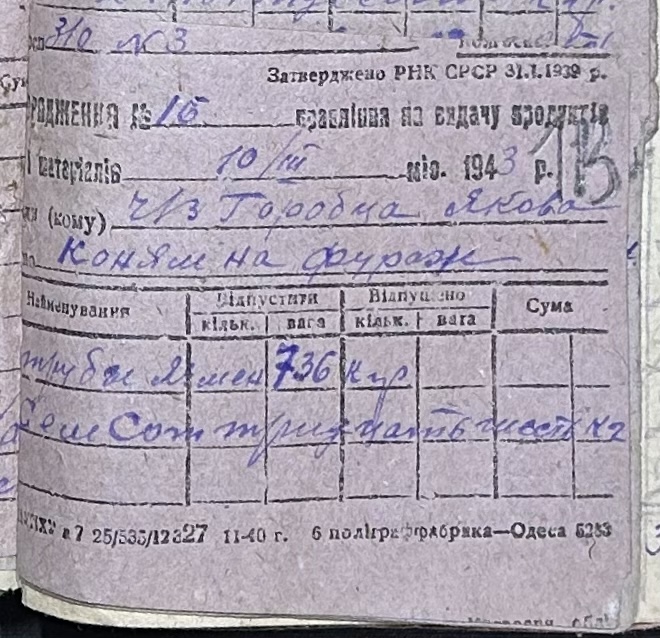 з/о № 3
Затверджено РНК СРСР 31.I.1939 р.
РЯДЖЕННЯ № 15 правління на видачу продуктів
і матеріалів 10/III міс. 1943 р.
13
(кому) Ч/З Горобца Якова
Коням на фураж
Найменування Відпустити Відпущено Сума
кільк. вага кільк. вага
Ячмен 736 кгр
Семсот тридцать шесть кг
№ 7 25/535/12327 11-40 г. 6 поліграффабрика—Одеса 5283